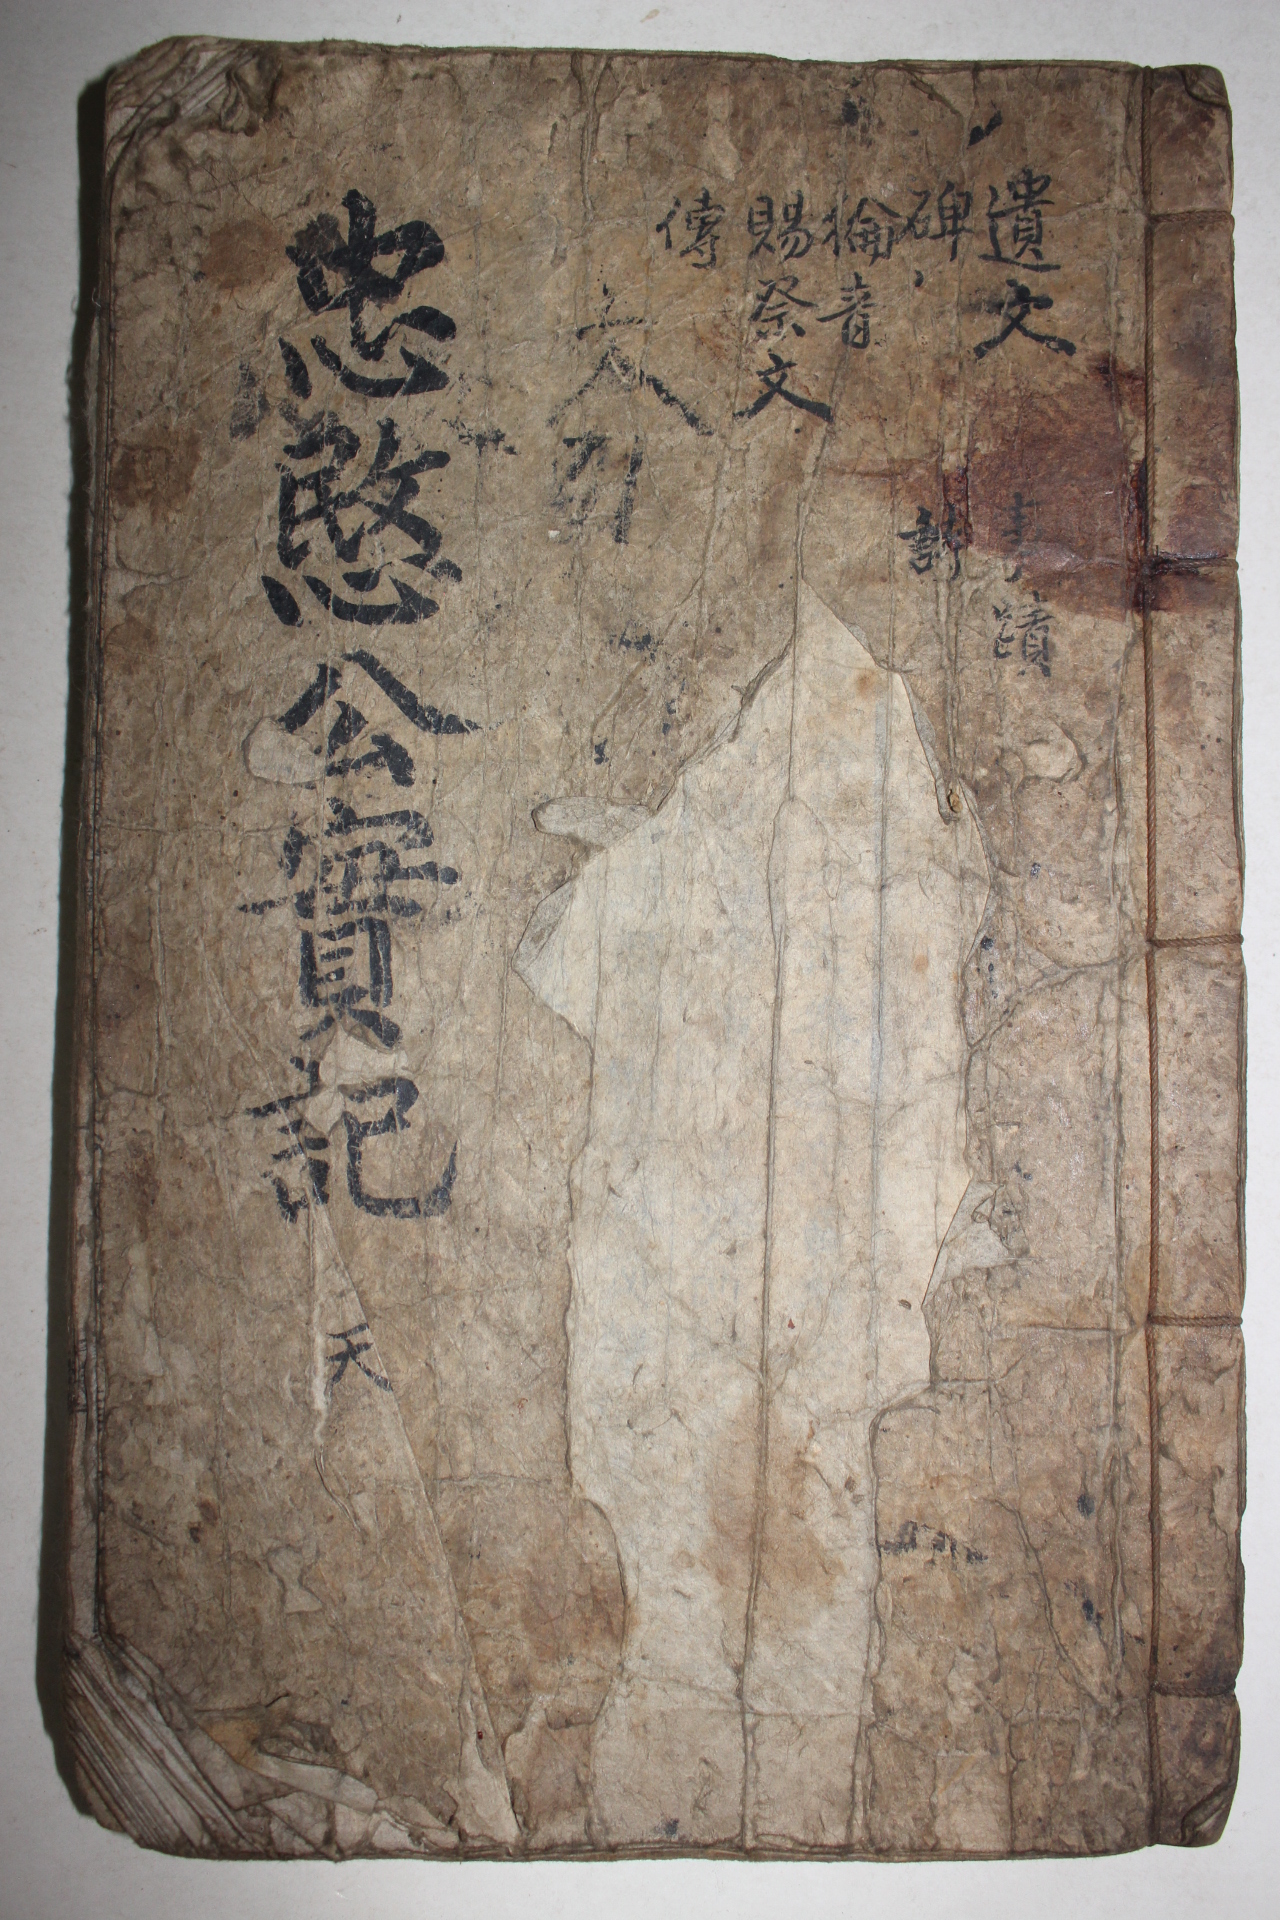 遺文
事蹟
碑
詩
綸音
賜祭文
傳
忠愍公實記
天